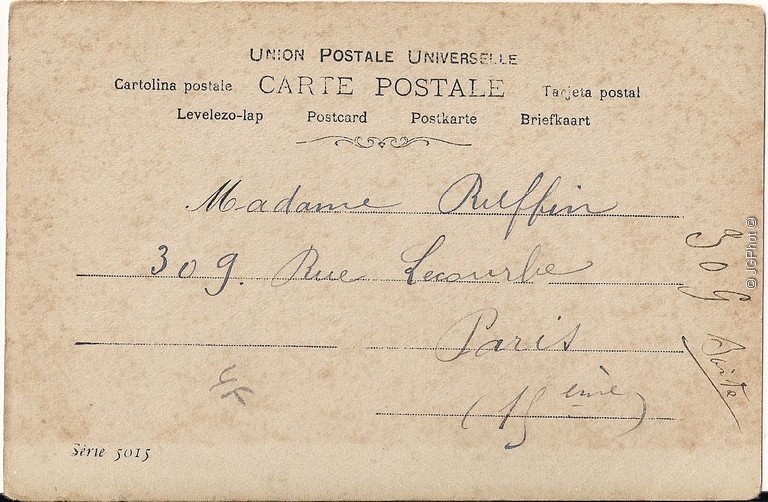 UNION POSTALE UNIVERSELLE
Cartolina postale CARTE POSTALE Tarjeta postal
Levelezo-lap Postcard Postkarte Briefkaart
Madame Ruffin
309. Rue Lecourbe
Paris
(15ème)
309
Boite
Série 5015
© JGPhot ©